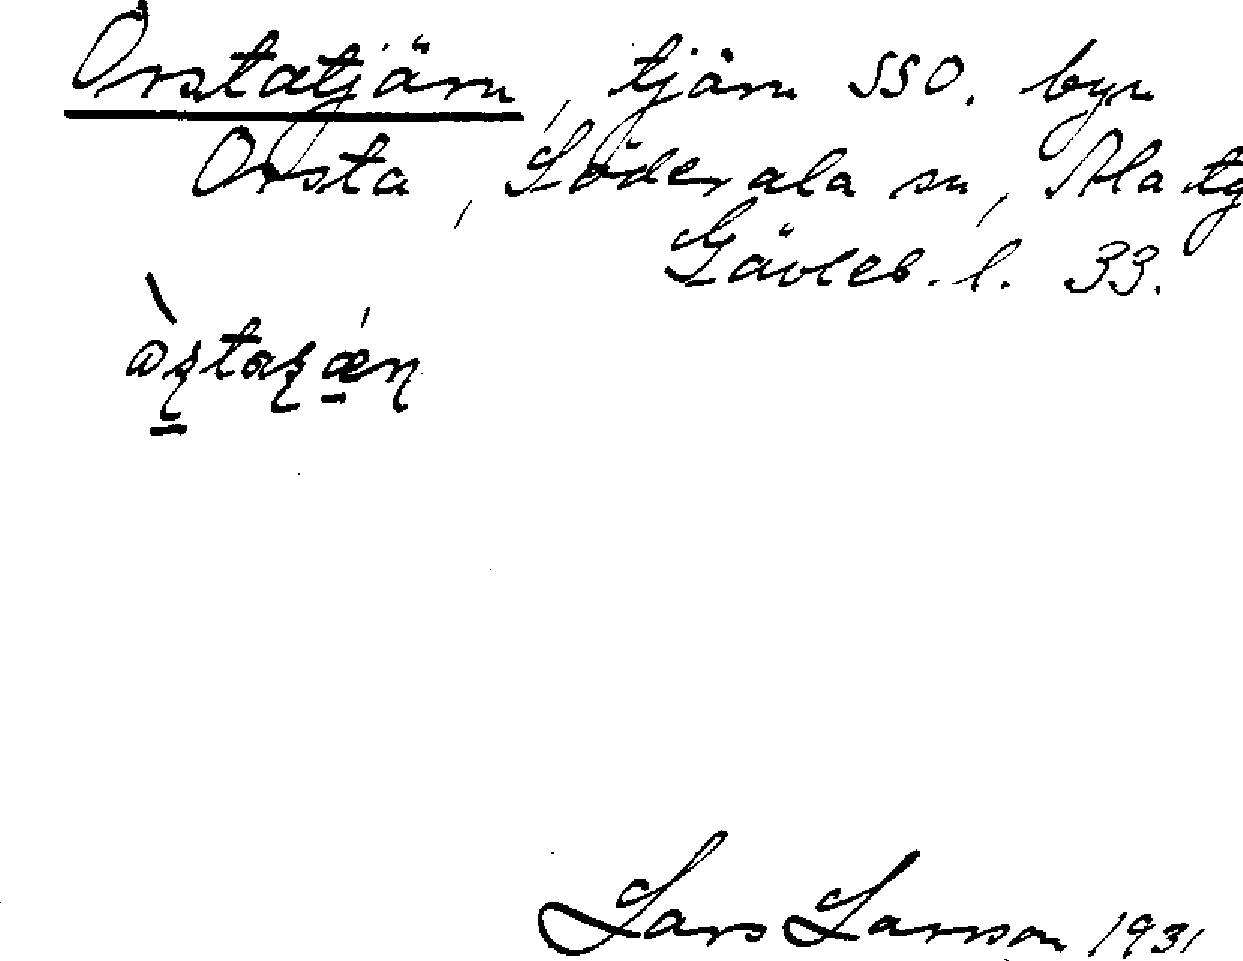 Orstatjärn, tjärn SSO. byn
Orsta, Söderala sn, Ala tg
Gävleb. l. 33.
Lars Larsson 1931